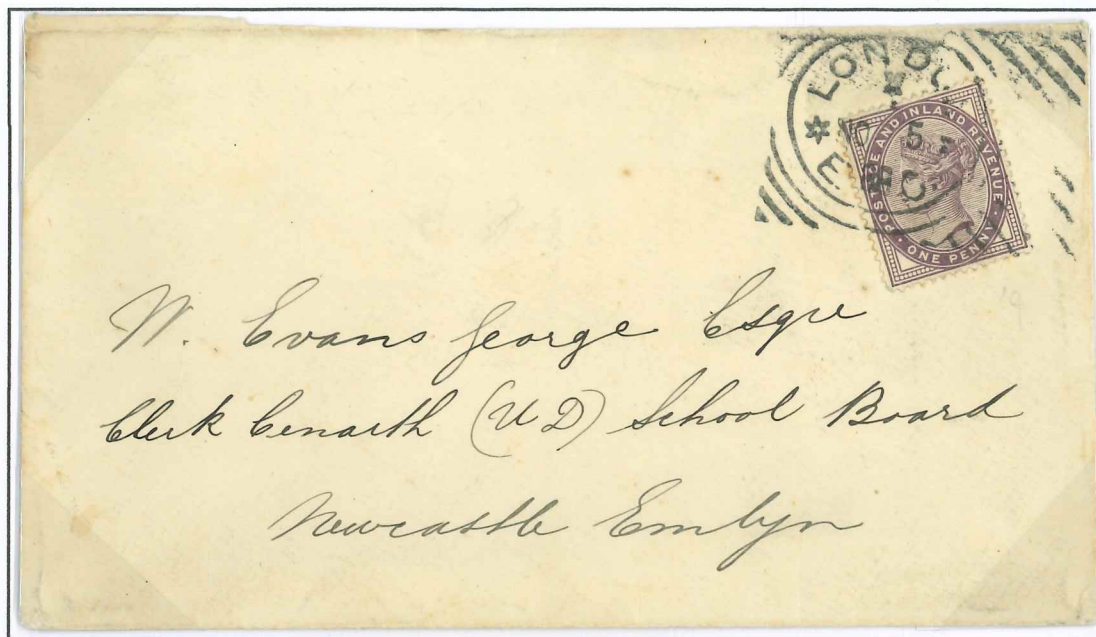 LOND
5
E.C
POSTAGE AND INLAND REVENUE
ONE PENNY
W. Evans George Esqre
Clerk Cenarth (U D) School Board
Newcastle Emlyn
19